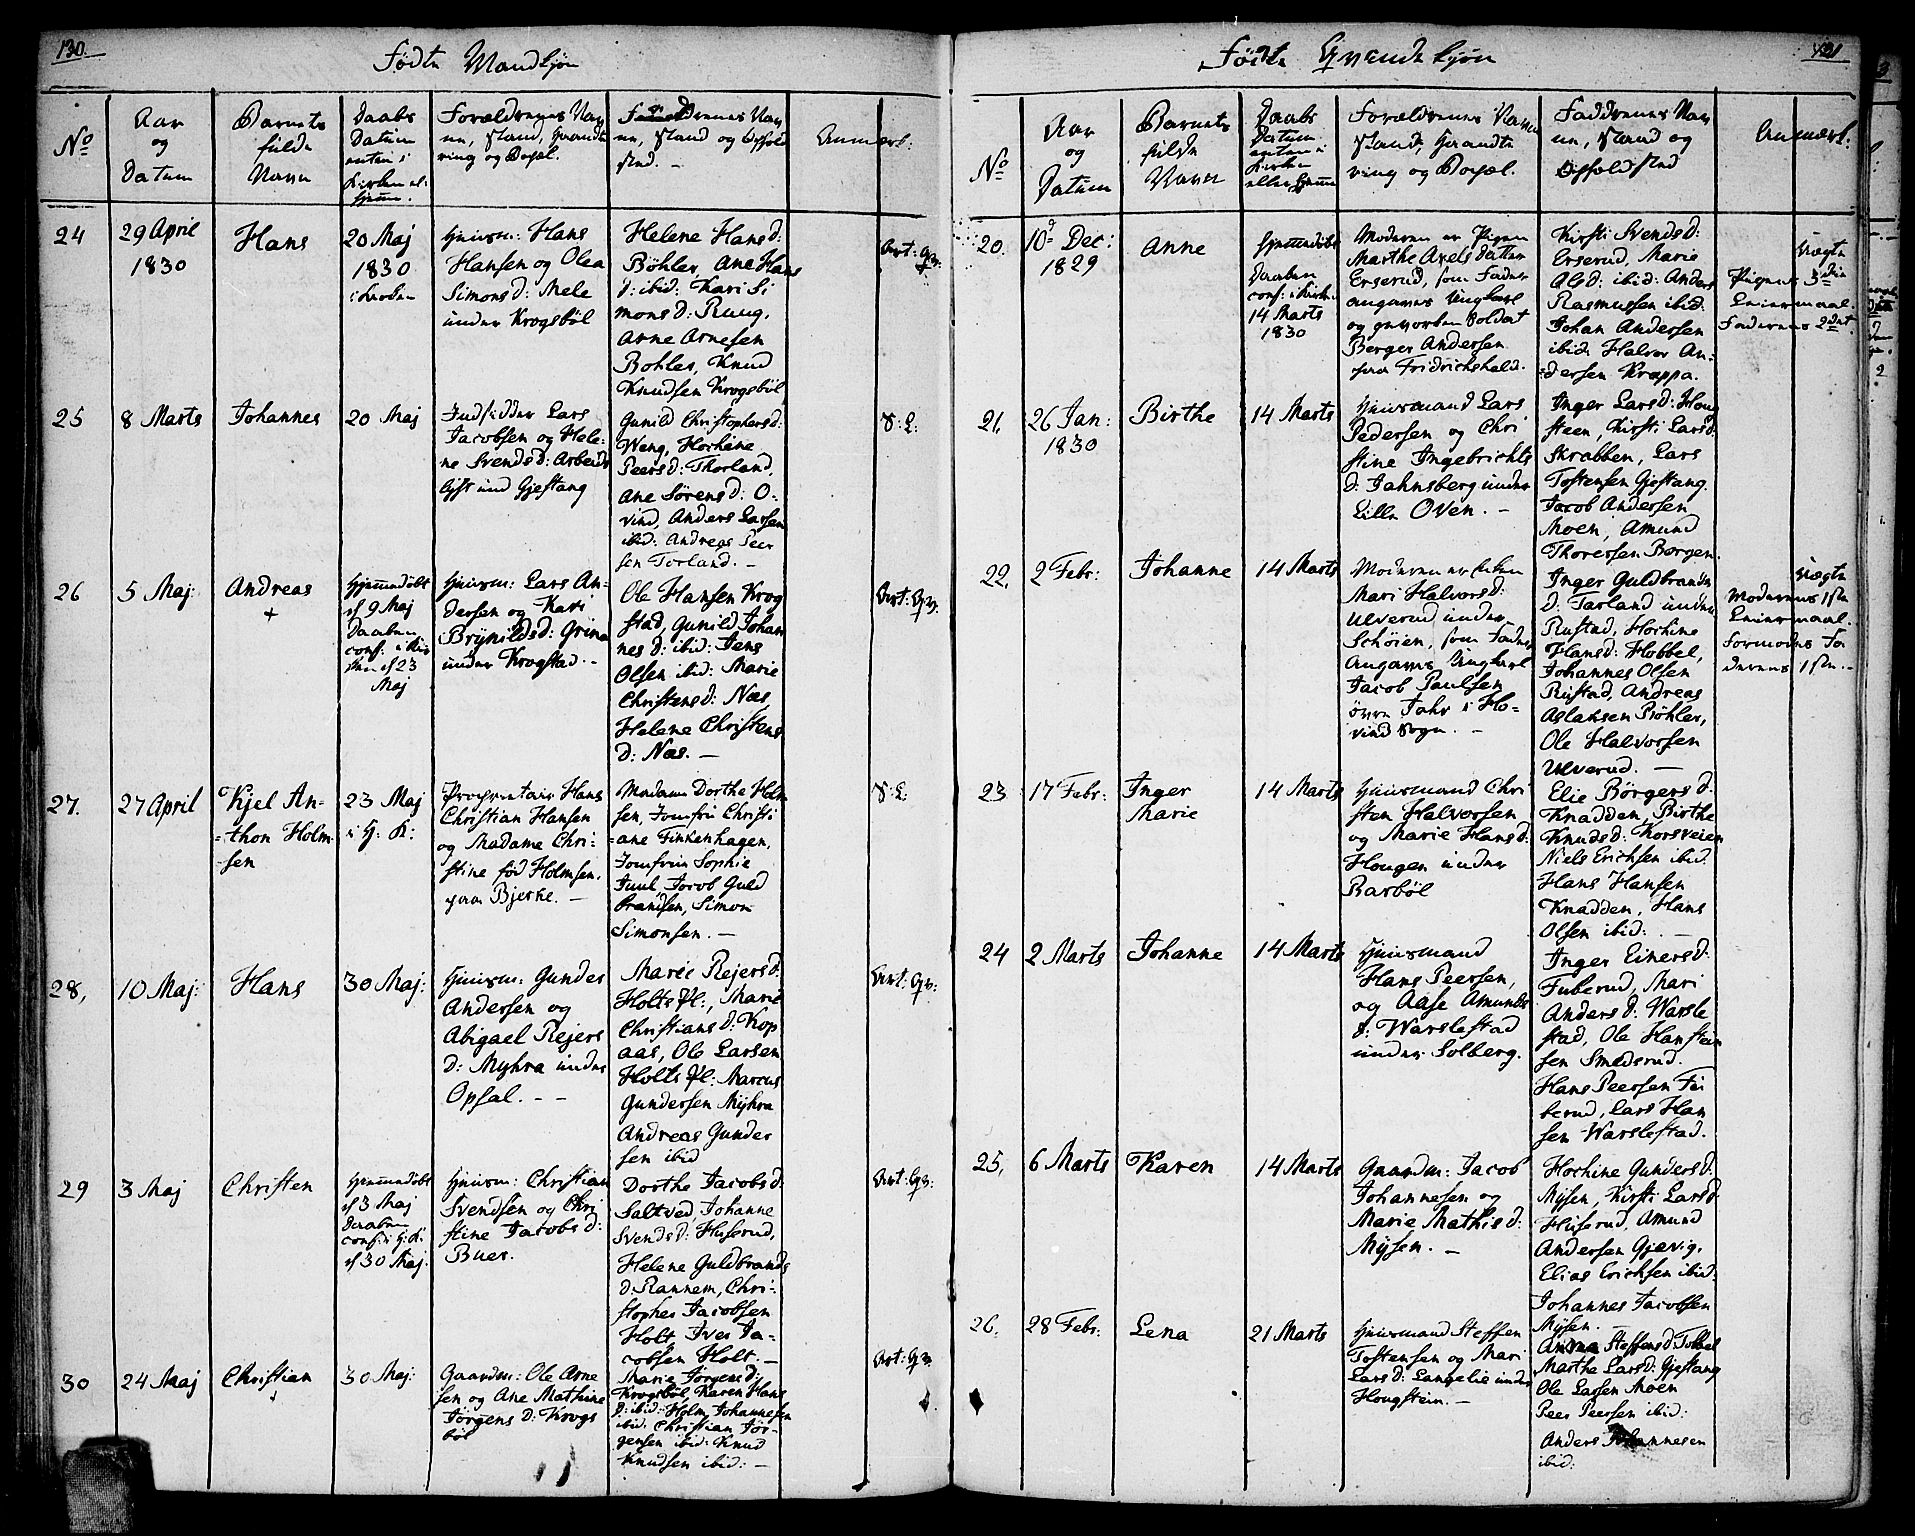 130.
Fødte Mandkjøn
No
Aar
og
Datum
Barnets
fulde
Navn
Daabs
Datum
enten i
Kirken el:
hjemme.
Forældrenes Nav
ne, Stand, Haandte
ring og Bopæl.
Faddrenes Nav
ne, Stand og Opholds
sted. -
Anmærk:
24
29 April
1830
Hans
20 Maj
1830
i Kroben
Huusm: Hans
Hansen og Olea
Simonsd: Mele
under Krogsbøl
Helene Hansd:
Bøhler, Ane Hans
d: ibid: Kari Si
monsd: Rung,
Arne Arnesen
Bohler, Knud
Knudsen Krogsbøl
Att: Qv.
25
8 Marts
Johannes
20 Maj
Indsidder Lars
Jacobsen og Hele-
ne Svendsd: Arbeids
Gjestang
Gunild Christophersd:
Wang, Hockine
Peersd: Thorland,
Ane Sørensd: O-
vind, Anders Larsen
ibid: Andreas Peer
sen Torland. -
S: L:
26
5 Maj:
Andreas
+
Hjemmedøbt
d 9 Maj
Daaben
conf: i Kir
ken d 23
Maj
Huusm: Lars An-
dersen og Kari
Brynildsd: Grina
under Krogstad. -
Ole Hansen Krog
stad, Gunild Johan
nesd: ibid: Jens
Olsen ibid: Marie
Christensd: Næs,
Helene Christens
d: Næs. -
Att: Qv:
27.
27 April
Kjel An-
thon Holm-
sen
23 Maj
i H. K:
Proprietair Hans
Christian Hansen
og Madame Chri-
stine fød Holmsen,
paa Bjerke. -
Madame Dorthe Holm
sen, Jomfru Christi
ane Finkenhagen,
Jomfru Sophie
Juul Jacob Guld
brandsen, Simon
Simonsen. -
S: L:
28,
10 Maj:
Hans
30 Maj:
Huusm: Gunder
Andersen og
Abigael Rejers
d: Myhra under
Opsal. - -
Marie Rejersd:
Holts Pl:, Marie
Christiansd: Kop
aas, Ole Larsen
Holts Pl: Marcus
Gundersen Myhra
Andreas Gunder
sen ibid
Att: Qv:
29
3 Maj
Christen
Hjemmedøbt
d 3 Maj
Daaben
conf: i H. K.
d 30 Maj:
Huusm: Christian
Svendsen og Chri
stine Jacobsd:
Buer.
Dorthe Jacobsd:
Saltved, Johanne
Svendsd: Huserud,
Helene Guldbrands
d: Rannem, Chri-
stopher Jacobsen
Holt, Iver Ja-
cobsen Holt. -
Att: Qv:
30
24 Maj
Christian
+
30 Maj:
Gaardm: Ole Arne
sen og Ane Mathine
Jørgensd: Krogs
bøl
Marie Jørgensd:
Krogsbøl, Karen Hans
d: ibid: Holm Johannesen
ibid: Christian Jør-
gensen ibid: Knud
Knudsen ibid: -
Att: Qv.
131
Fødte Qvindekjøn
No
Aar
og
Datum
Barnets
fulde
Navn
Daabs
Datum
enten i
Kirken
eller hjemme
Forældrenes Navn
Stand, Haandte
ring og Bopæl.
Faddrenes Nav
ne, Stand og
Opholdsted
Anmærk:
20.
10d Dec:
1829
Anne
Hjemmedøbt
Daaben
conf: i Kirken
14 Marts
1830
Moderen er Pigen
Marthe Axelsdatter
Erserud, som Fader
angaves Ungkarl
og geworben Soldat
Berger Andersen
paa Fridrichshald.
Kirsti Svendsd:
Erserud, Marie
Alsd: ibid: Anders
Rasmussen ibid:
Johan Andersen
ibid: Halvor An-
dersen Krappa.
Uægte
Pigens 3die
Leiermaal.
Faderens 2det.
21.
26 Jan:
1830
Birthe
14 Marts
Huusmand Lars
Pedersen og Chri
stine Ingebrichts
d: Jahnsberg under
Lille Oven. -
Inger Larsd: Houg
steen, Kirsti Larsd:
Skrabben, Lars
Tostensen Gjestang.
Jacob Andersen
Moen, Amund
Thoressen Borgen.
22.
2 Febr:
Johanne
14 Marts
Moderen er Enken
Mari Halvorsd:
Ulverud under
Schøien, som Fader
Angaves Ungkarl
Jacob Paulsen
øvre Jahr i Ho-
vind Sogn. -
Inger Guldbrands
d: Tarland under
Rustad, Hockine
Hansd: Hobbel,
Johannes Olsen
Rustad, Andreas
Aslaksen Bøhler,
Ole Halvorsen
Ulverud. -
Uægte
Moderens 1ste
Leiermaal.
Formodes Fa
derens 1ste. -
23
17 Febr:
Inger
Marie
14 Marts
Huusmand Chri
sten Halvorsen
og Marie Hansd:
Hougen under
Barbøl
Elie Børgersd:
Knadden, Birthe
Knudsd: Korsveien
Niels Erichsen ibid.
Hans Hansen
Knadden, Hans
Olsen ibid: -
24
2 Marts
Johanne
14 Marts
Huusmand
Hans Peersen,
og Aase Amunds
d: Warslestad
under Solberg.
Inger Einersd:
Fuberud, Mari
Andersd: Warsle
stad, Ole Hanstein
sen Smedsrud.
Hans Peersen Fu
berud, Lars Han
sen Warslestad.
25.
6 Marts
Karen
14 Marts
Gaardm: Jacob
Johannesen og
Marie Mathisd:
Mysen. -
Hockine Gundersd:
Mysen, Kirsti Larsd:
Huserud, Amund
Andersen Gjævig,
Elias Erichsen ibid:
Johannes Jacobsen
Mysen. -
26.
28 Febr:
Lena
21 Marts
Huusmand Steffen
Tostensen og Mari
Larsd: Langelie under
Hougstein. -
Andrea Steffensd: Tobbel
Marthe Larsd: Gjestang
Ole Larsen Moen
Peer Peersen ibid:
Anders Johannesen
ibid: